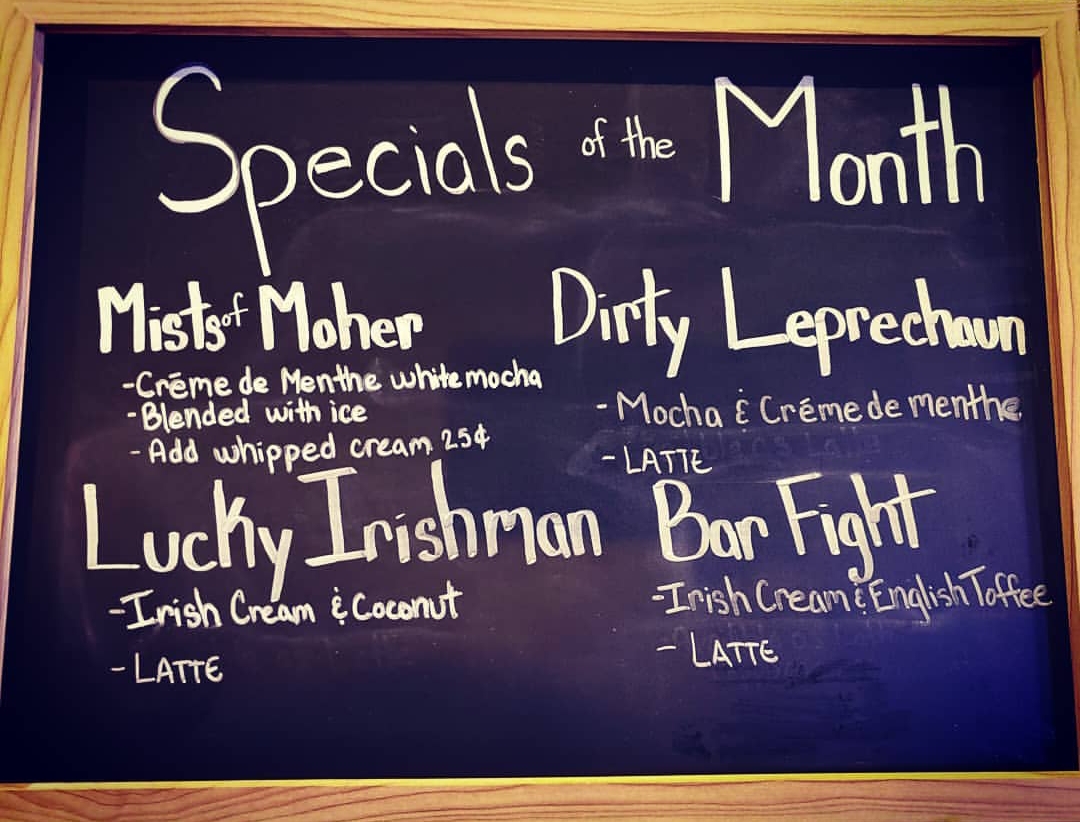 Specials of the Month
Mists of Moher
-Créme de Menthe white mocha
-Blended with ice
-Add whipped cream 25¢
Dirty Leprechaun
-Mocha & Créme de menthe
-LATTE
Lucky Irishman
-Irish Cream & Coconut
-LATTE
Bar Fight
-Irish Cream & English Toffee
-LATTE